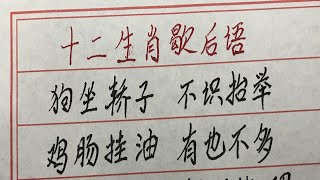 十二生肖歇后语
狗坐轿子 不识抬举
鸡肠挂油 有也不多